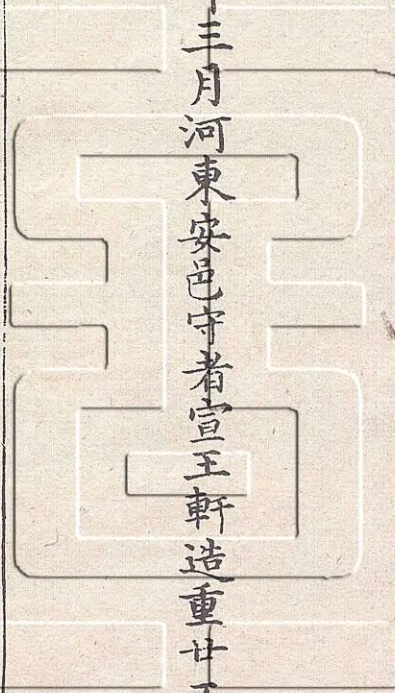 三月河東安邑守者宣王軒造重廿